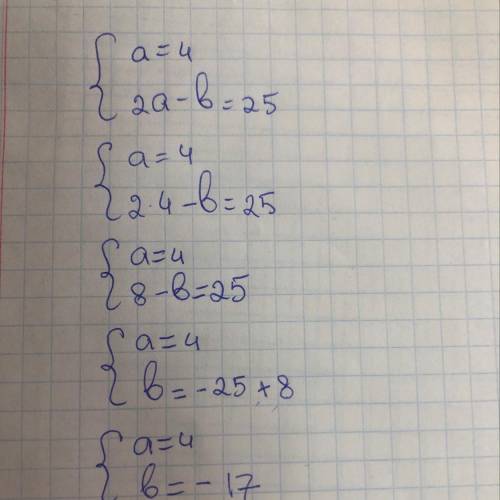 a=4
2a-b=25
a=4
2·4-b=25
a=4
8-b=25
a=4
b=-25+8
a=4
b=-17